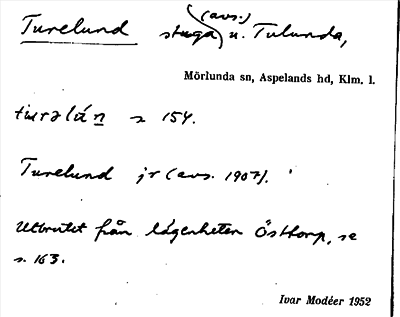 (avs.)
Turelund stuga u. Tulunda,
Mörlunda sn, Aspelands hd, Klm. l.
turəlún s 154.
Turelund jr (avs. 1907).
Utbrutet från lägenheten Östtorp, se
s. 163.
Ivar Modéer 1952